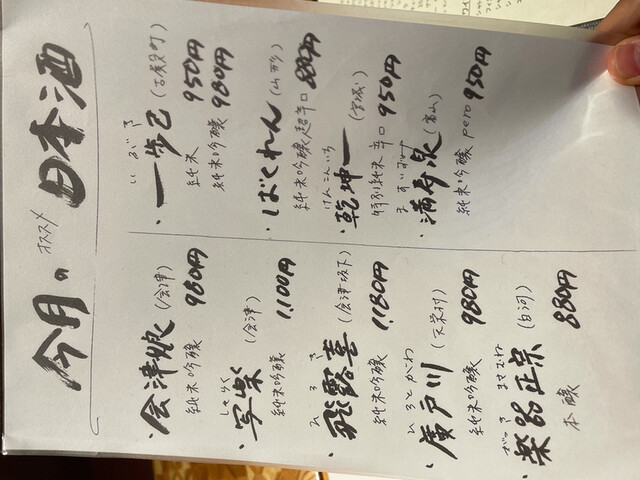 今月のオススメ日本酒
・会津娘 (会津)
純米吟醸 980円
しゃらく
・写楽 (会津)
純米吟醸 1,100円
ひろき
・飛露喜 (会津坂下)
純米吟醸 1,180円
ひろとがわ
・廣戸川 (天栄村)
純米吟醸 980円
がっきまさむね
・楽器正宗 (白河)
本醸 880円
いぶき
・一歩己 (古殿町)
純米 950円
純米吟醸 980円
・ばくれん (山形)
純米吟醸超辛口 880円
けんこんいち
・乾坤一 (宮城)
特別純米 辛口 950円
ますいずみ
・満寿泉 (富山)
純米吟醸 pero 950円